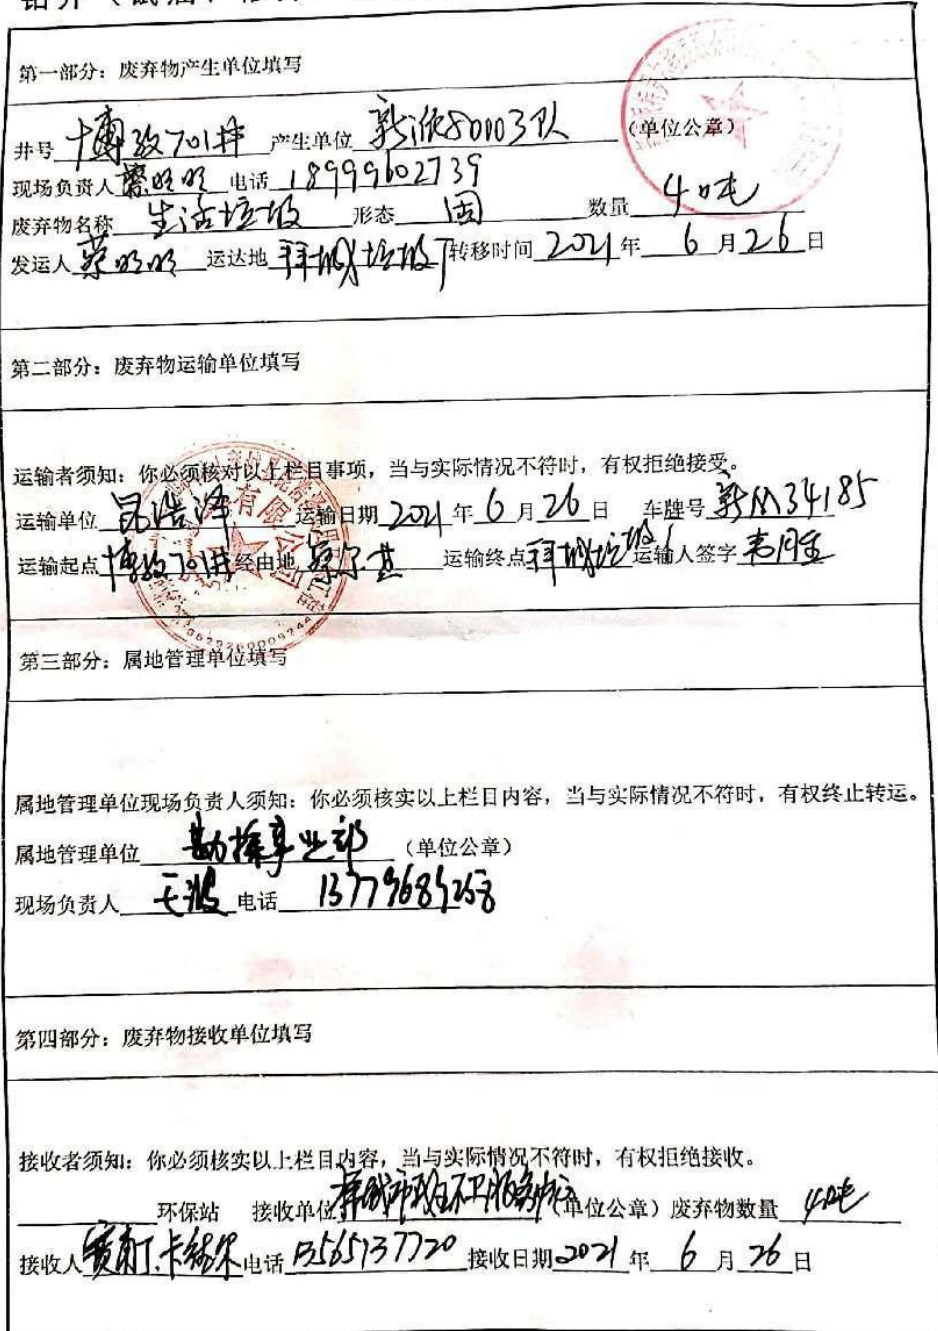 第一部分：废弃物产生单位填写
井号 博孜701井 产生单位 新派80003队 （单位公章）
现场负责人 蔡明明 电话 18999602739
废弃物名称 生活垃圾 形态 固 数量 40吨
发运人 蔡明明 运达地 拜城垃圾厂 转移时间 2021 年 6 月 26 日
第二部分：废弃物运输单位填写
运输者须知：你必须核对以上栏目事项，当与实际情况不符时，有权拒绝接受。
运输单位 昆浩泽 运输日期 2021 年 6 月 26 日 车牌号 新M34185
运输起点 博孜701井 经由地 察尔其 运输终点 拜城垃圾厂 运输人签字
有限公司
第三部分：属地管理单位填写
属地管理单位现场负责人须知：你必须核实以上栏目内容，当与实际情况不符时，有权终止转运。
属地管理单位 勘探事业部 （单位公章）
现场负责人 王波 电话
第四部分：废弃物接收单位填写
接收者须知：你必须核实以上栏目内容，当与实际情况不符时，有权拒绝接收。
环保站 接收单位 （单位公章）废弃物数量 40吨
接收人 电话 13565137720 接收日期 2021 年 6 月 26 日